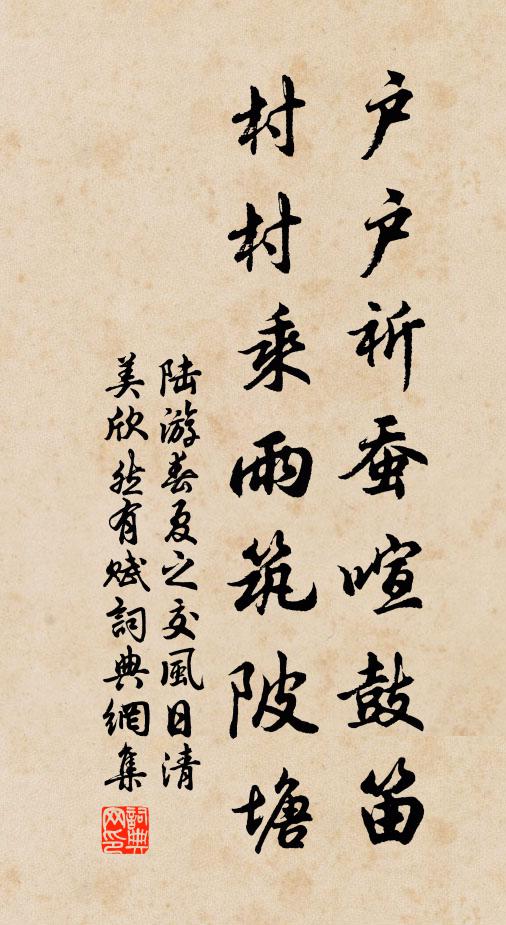 户户祈蚕喧鼓笛
村村乘雨筑陂塘
陆游春夏之交風日清
美欣然有赋詞典網集
詞典
网印